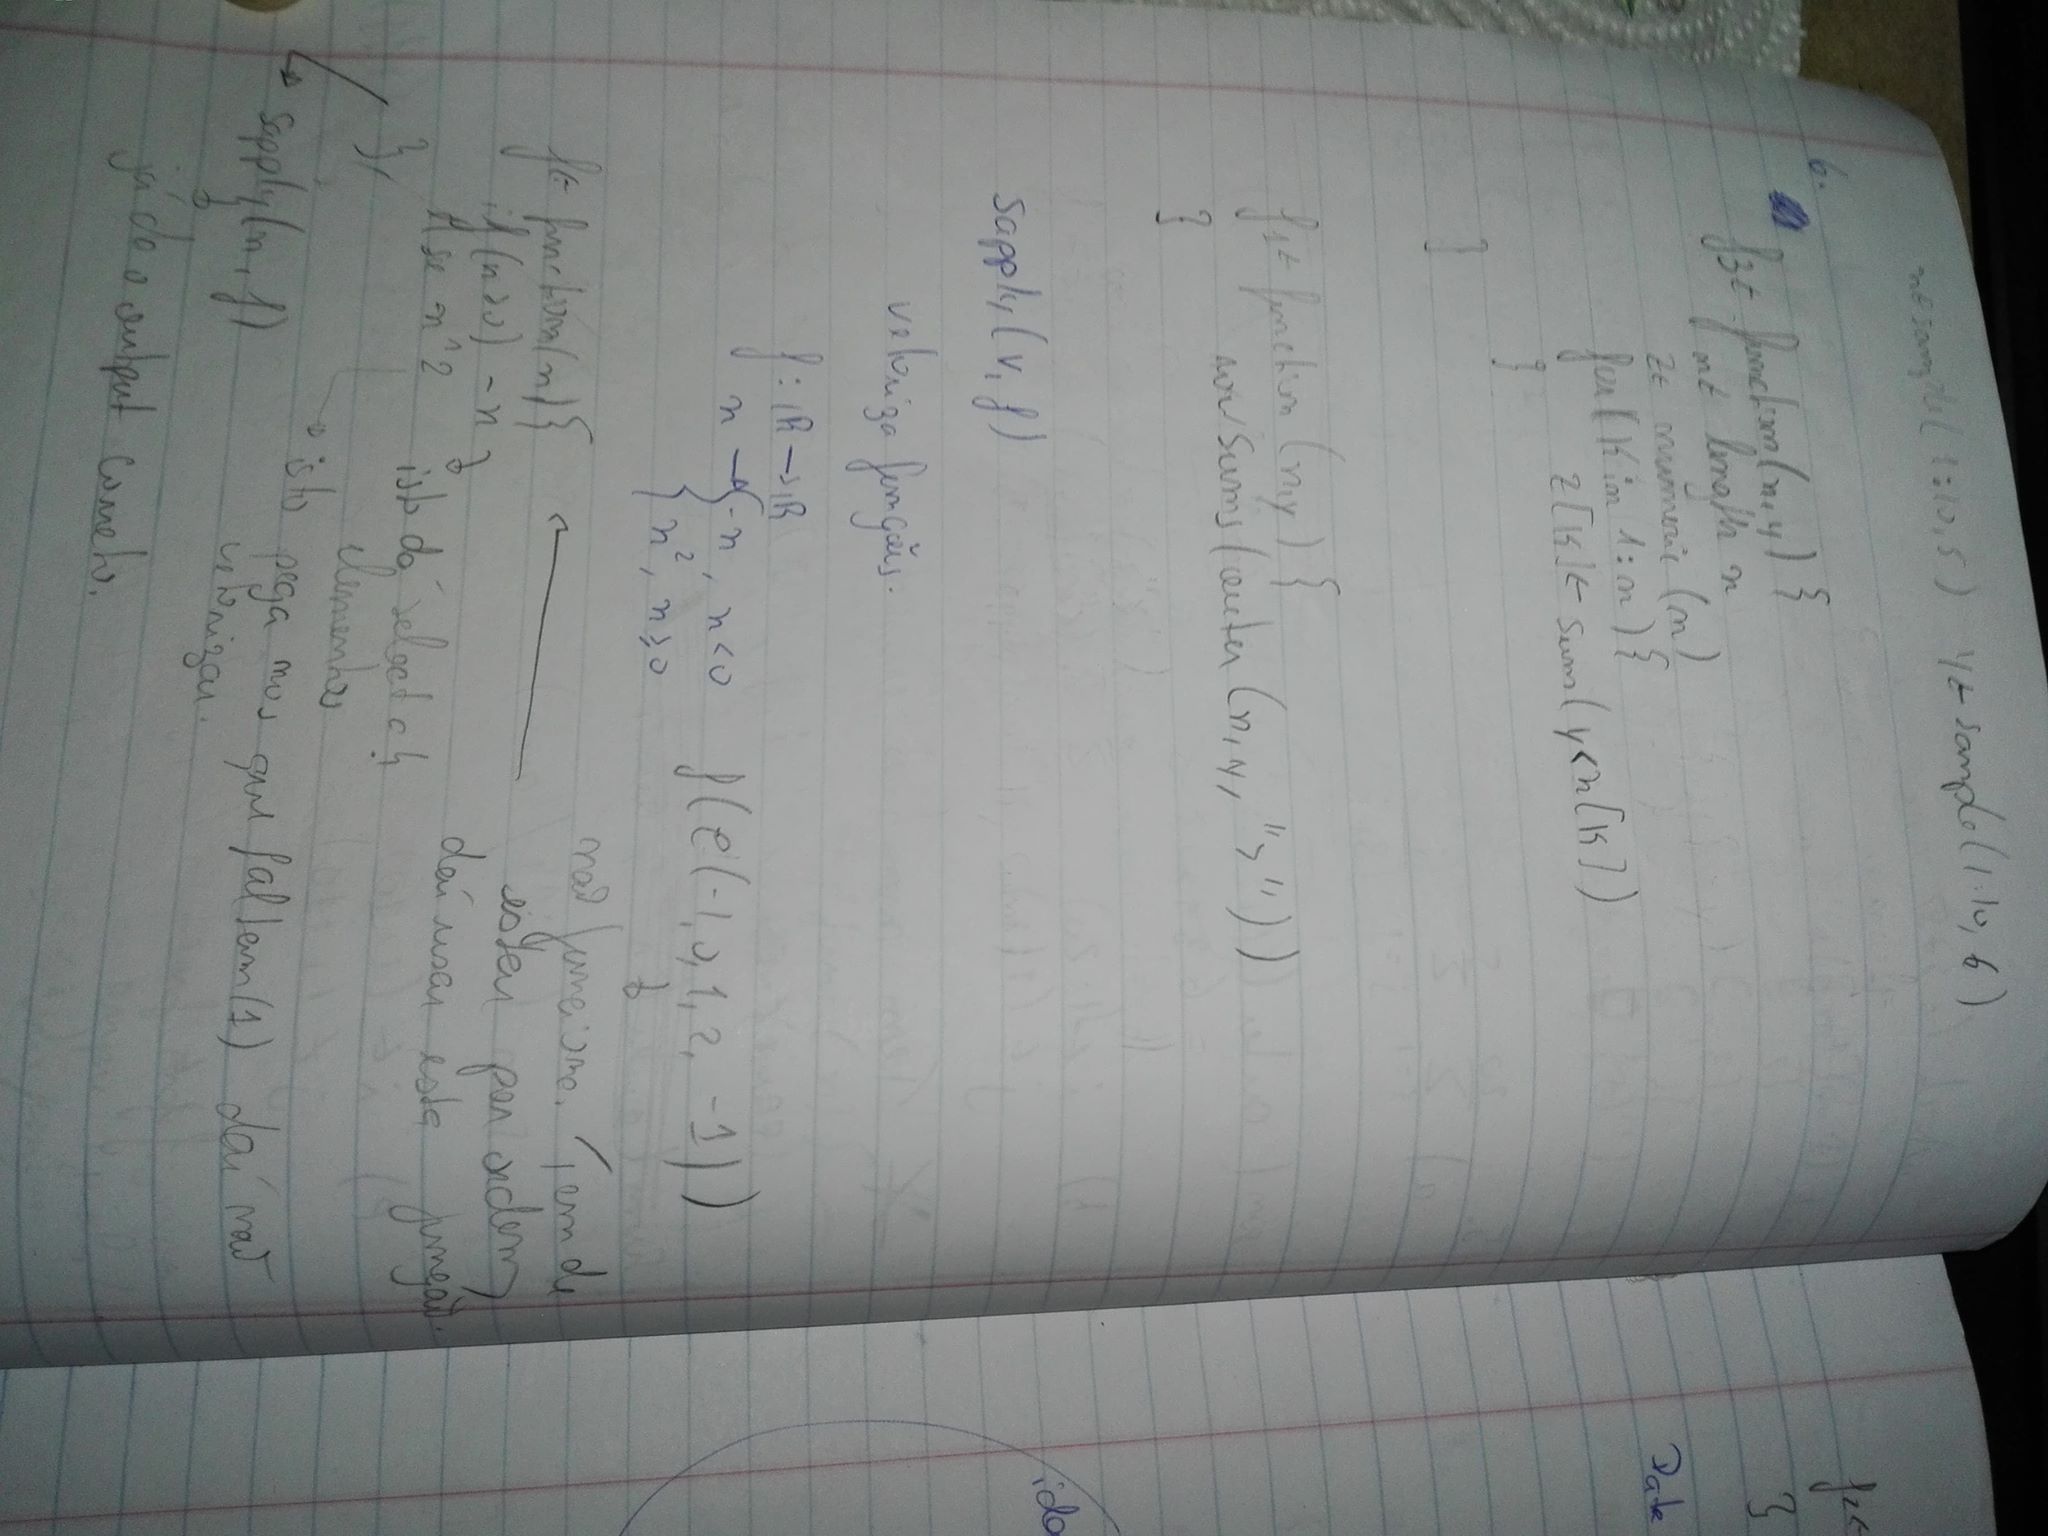 x ← sample(1:10,5)   y ← sample(1:10, 6)
6.
f3 ← function(x,y) {
n ← length x
z ← numeric (n)
for(K in 1:n){
z[K] ← sum(y<x[K])
}
}
f1 ← function (x,y) {
rowSums(outer(x,y, ">"))
}
sapply(v, f)
vetoriza funções.
f: ℝ → ℝ
x → { -x, x<0
x², x≥0
f(c(-1,0,1,2, -1))
não funciona. Tem de
estar por ordem,
daí usar esta função.
f ← function(x){
if(x>0) -x
else x^2
},
isto dá select a 4
elementos
isto pega nos que faltam(1) daí não
vetorizar.
sapply(x, f)
já dá o output correto.
f2 ←
}
Date
ida